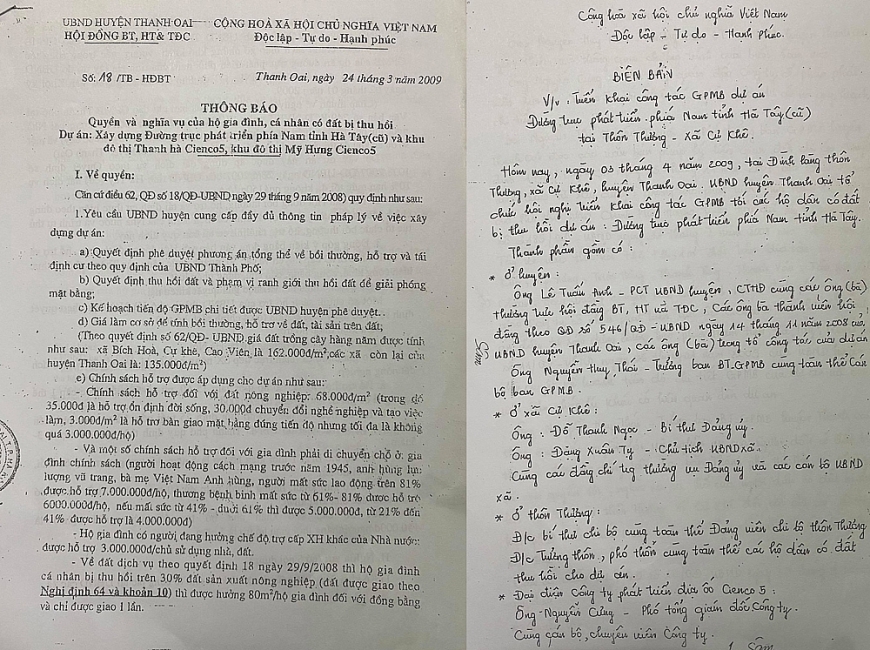 UBND HUYỆN THANH OAI
HỘI ĐỒNG BT, HT& TĐC
CỘNG HOÀ XÃ HỘI CHỦ NGHĨA VIỆT NAM
Độc lập - Tự do - Hạnh phúc
Số: 18 /TB - HĐBT
Thanh Oai, ngày 24 tháng 3 năm 2009
THÔNG BÁO
Quyền và nghĩa vụ của hộ gia đình, cá nhân có đất bị thu hồi
Dự án: Xây dựng Đường trục phát triển phía Nam tỉnh Hà Tây(cũ) và khu
đô thị Thanh hà Cienco5, khu đô thị Mỹ Hưng Cienco5
I. Về quyền:
Căn cứ điều 62, QĐ số 18/QĐ-UBND ngày 29 tháng 9 năm 2008) quy định như sau:
1.Yêu cầu UBND huyện cung cấp đầy đủ thông tin pháp lý về việc xây
dựng dự án:
a) Quyết định phê duyệt phương án tổng thể về bồi thường, hỗ trợ và tái
định cư theo quy định của UBND Thành Phố;
b) Quyết định thu hồi đất và phạm vi ranh giới thu hồi đất để giải phóng
mặt bằng;
c) Kế hoạch tiến độ GPMB chi tiết được UBND huyện phê duyệt.
d) Giá làm cơ sở để tính bồi thường, hỗ trợ về đất, tài sản trên đất;
(Theo quyết định số 62/QĐ- UBND giá đất trồng cây hàng năm được tính
như sau: xã Bích Hoà, Cự khê, Cao Viên là 162.000đ/m²,các xã còn lại của
huyện Thanh Oai là: 135.000đ/m²)
e) Chính sách hỗ trợ được áp dụng cho dự án như sau:
- Chính sách hỗ trợ đối với đất nông nghiệp: 68.000đ/m² (trong đó
35.000đ là hỗ trợ ổn định đời sống, 30.000đ chuyển đổi nghề nghiệp và tạo việc
làm, 3.000đ/m² là hỗ trợ bàn giao mặt bằng đúng tiến độ nhưng tối đa là không
quá 3.000.000đ/hộ)
- Và một số chính sách hỗ trợ đối với gia đình phải di chuyển chỗ ở: gia
đình chính sách (người hoạt động cách mạng trước năm 1945, anh hùng lực
lượng vũ trang, bà mẹ Việt Nam Anh hùng, người mất sức lao động trên 81%
được hỗ trợ 7.000.000đ/hộ, thương bệnh binh mất sức từ 61%- 81% được hỗ trợ
6000.000đ/hộ, nếu mất sức từ 41% - dưới 61% thì được 5.000.000đ, từ 21% đến
41% được hỗ trợ là 4.000.000đ)
- Hộ gia đình có người đang hưởng chế độ trợ cấp XH khác của Nhà nước:
được hỗ trợ 3.000.000đ/chủ sử dụng nhà, đất.
- Về đất dịch vụ theo quyết định 18 ngày 29/9/2008 thì hộ gia đình
cá nhân bị thu hồi trên 30% đất sản xuất nông nghiệp (đất được giao theo
Nghị định 64 và khoản 10) thì được hưởng 80m²/hộ gia đình đối với đồng bằng
và chỉ được giao 1 lần.
Cộng hòa xã hội chủ nghĩa Việt Nam
Độc lập - Tự do - Hạnh Phúc.
BIÊN BẢN
V/v: Triển khai công tác GPMB dự án
Đường trục phát triển phía Nam tỉnh Hà Tây (cũ)
tại Thôn Thượng - Xã Cự Khê.
Hôm nay, ngày 03 tháng 4 năm 2009, tại Đình làng thôn
Thượng, xã Cự Khê, huyện Thanh Oai. UBND huyện Thanh Oai tổ
chức hội nghị triển khai công tác GPMB tới các hộ dân có đất
bị thu hồi dự án: Đường trục phát triển phía Nam tỉnh Hà Tây.
Thành phần gồm có:
* Ở huyện:
Ông Lê Tuấn Anh - PCT UBND huyện, CTHĐ cùng các ông (bà)
thường trực hội đồng BT, HT và TĐC, các ông bà thành viên hội
đồng theo QĐ số 546/QĐ-UBND ngày 14 tháng 11 năm 2008 của
UBND huyện Thanh Oai, các ông (bà) trong tổ công tác của dự án
Ông Nguyễn Huy Thái - Trưởng ban BT.GPMB cùng toàn thể cán
bộ ban GPMB.
* Ở xã Cự Khê:
Ông: Đỗ Thanh Ngọc - Bí thư Đảng ủy.
Ông: Đặng Xuân Tý - Chủ tịch UBND xã.
Cùng các đồng chí trg thường vụ Đảng ủy và các cán bộ UBND
xã.
* Ở thôn Thượng:
Đ/c bí thư chi bộ cùng toàn thể Đảng viên chi bộ thôn Thượng
Đ/c Trưởng thôn, phó thôn cùng toàn thể các hộ dân có đất
thu hồi cho dự án.
* Đại diện Công ty phát triển địa ốc Cienco 5:
Ông Nguyễn Cường - Phó tổng giám đốc Công ty.
Cùng cán bộ, chuyên viên Công ty.